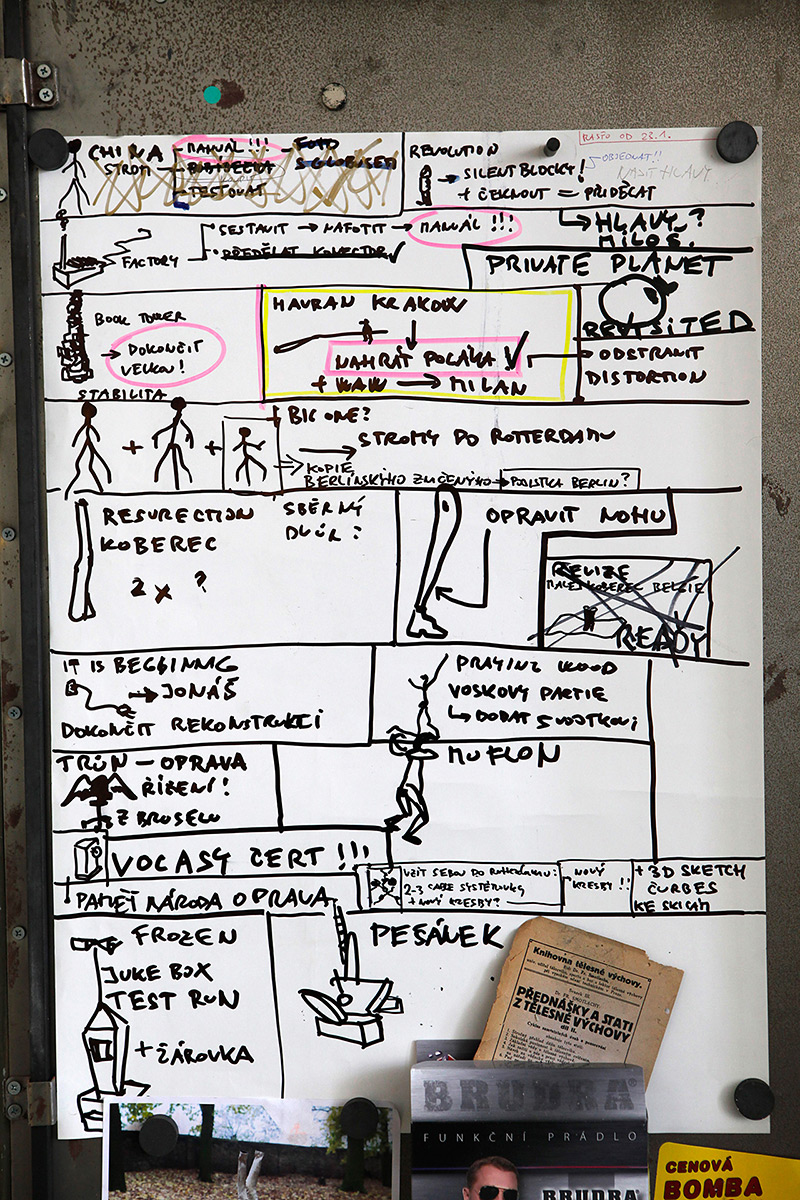 CHINA
MANUÁL !!!
FOTO
STROM
TESTOVAT
REVOLUTION
SILENT BLOCKY!
+ ČEKNOUT = PŘIDĚLAT
RASŤO OD 23.1.
OBJEDNAT!!
NAJÍT HLAVY
HLAVY?
MILOŠ.
FACTORY
SESTAVIT → NAFOTIT → MANUÁL !!!
PŘEDĚLAT KONECTOR ✓
PRIVATE PLANET
REVISITED
ODSTRANIT
DISTORTION
BOOK TOWER
→ DOKONČIT
VELKOU!
STABILITA
HAVRAN KRAKOW
NAHRÁT POLÁKA ✓
+ KAW → MILAN
+ +
BIG ONE?
→ STROMY DO ROTTERDAMU
KOPIE
BERLÍNSKÉHO ZNIČENÉHO → POJISTKA BERLIN?
RESURECTION
KOBEREC
2 x ?
SBĚRNÝ
DVŮR:
OPRAVIT NOHU
RELIZE
MALEJ KOBEREC BELGIE
READY
IT IS BEGGINING
→ JONÁŠ
DOKONČIT REKONSTRUKCI
PRAYING WOOD
VOSKOVÝ PARTIE
DODAT SVOJTKOVI
TRŮN – OPRAVA
ŘÍZENÍ!
Z BRUSELU
MUFLON
VOCASY ČERT !!!
VZÍT SEBOU DO ROTTERDAMU:
2-3 CARE SYSTÉMOVKY
+ NOVÝ KRESBY?
NOVÝ
KRESBY !!
+ 3D SKETCH
ČURBES
KE SKICÁM
PAMĚŤ NÁRODA OPRAVA
FROZEN
JUKE BOX
TEST RUN
+ ŽÁROVKA
PEŠÁNEK
Knihovna tělesné výchovy.
PŘEDNÁŠKY A STATI
Z TĚLESNÉ VÝCHOVY
díl II.
BRUDRA
FUNKČNÍ PRÁDLO
BRUDRA
CENOVÁ
BOMBA